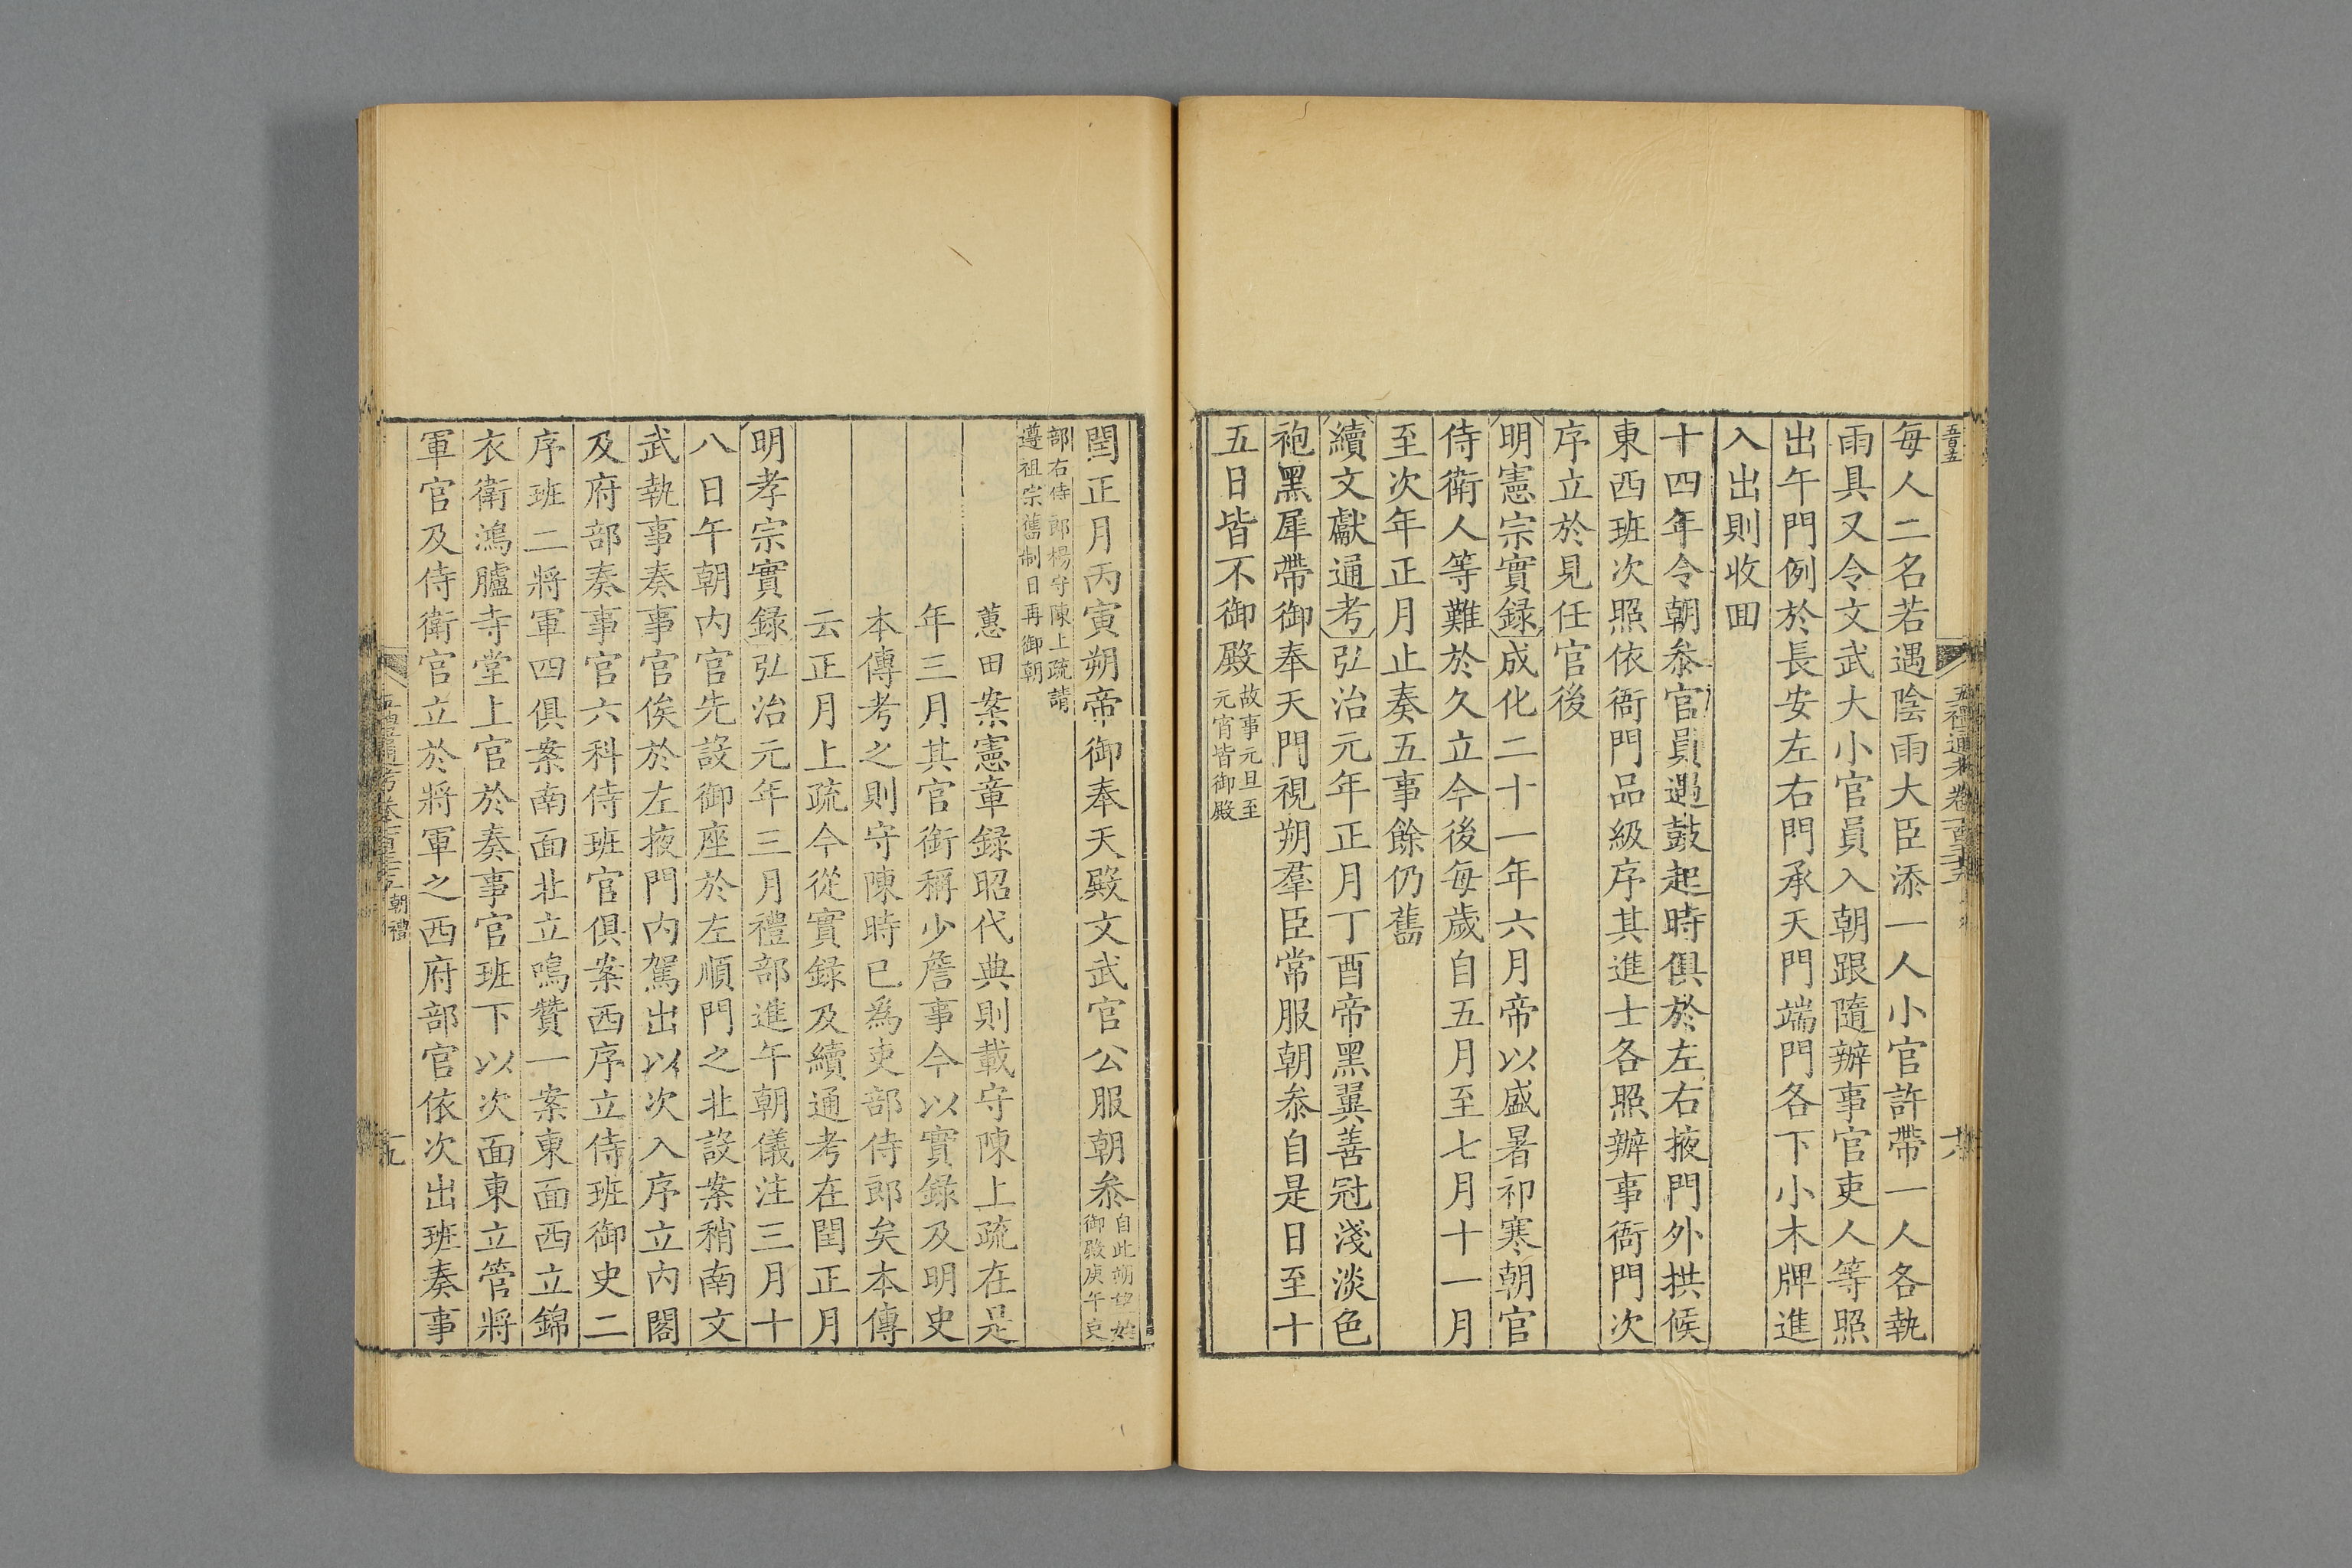 五百五
五禮通考卷一百三十五
每人二名若遇陰雨大臣添一人小官許帶一人各執
雨具又令文武大小官員入朝跟隨辦事官吏人等照
出午門例於長安左右門承天門端門各下小木牌進
入出則收回
十四年令朝叅官員遇鼓起時俱於左右掖門外拱候
東西班次照依衙門品級序其進士各照辦事衙門次
序立於見任官後
明憲宗實録成化二十一年六月帝以盛暑祁寒朝官
侍衛人等難於久立今後每歲自五月至七月十一月
至次年正月止奏五事餘仍舊
續文獻通考弘治元年正月丁酉帝黑翼善冠淺淡色
袍黑犀帶御奉天門視朔羣臣常服朝叅自是日至十
五日皆不御殿故事元旦至
元宵皆御殿
閏正月丙寅朔帝御奉天殿文武官公服朝叅自此朔望始
御殿庚午吏
部右侍郎楊守陳上疏請
遵祖宗舊制日再御朝
蕙田案憲章録昭代典則載守陳上疏在是
年三月其官銜稱少詹事今以實録及明史
本傳考之則守陳時已爲吏部侍郎矣本傳
云正月上疏今從實録及續通考在閏正月
明孝宗實録弘治元年三月禮部進午朝儀注三月十
八日午朝内官先設御座於左順門之北設案稍南文
武執事奏事官俟於左掖門内駕出以次入序立内閣
及府部奏事官六科侍班官俱案西序立侍班御史二
序班二將軍四俱案南面北立鳴贊一案東面西立錦
衣衛鴻臚寺堂上官於奏事官班下以次面東立管將
軍官及侍衛官立於將軍之西府部官依次出班奏事
朝禮